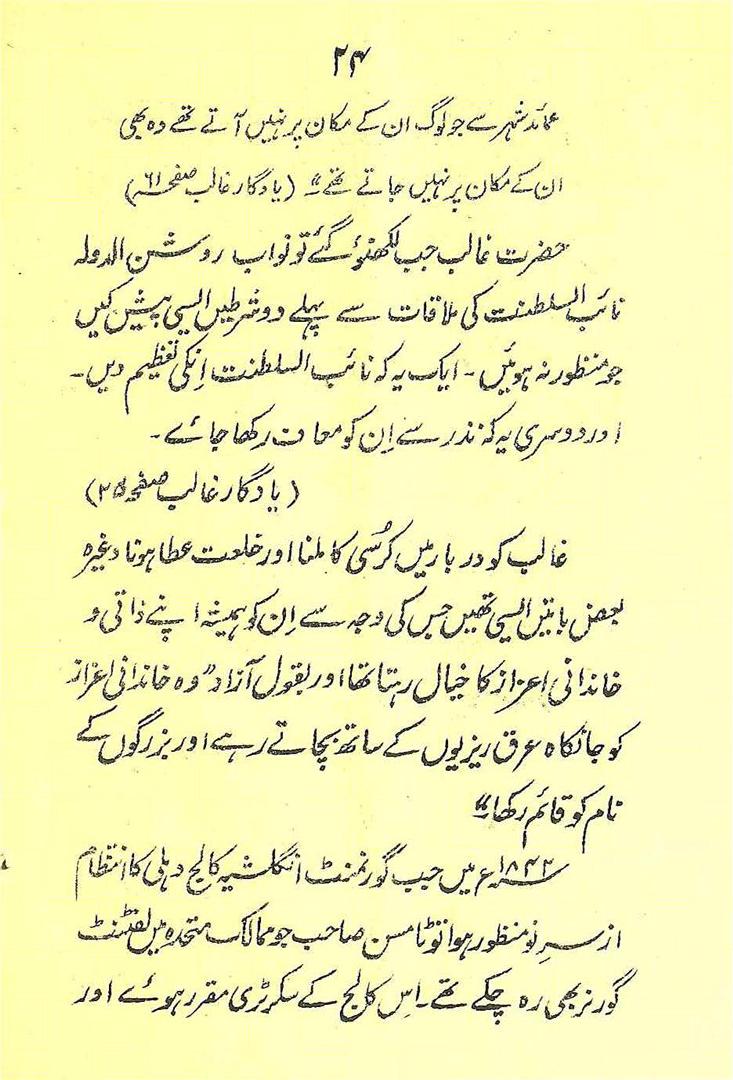 ۲۴
عمائد شہر سے جو لوگ ان کے مکان پر نہیں آتے تھے وہ بھی
ان کے مکان پر نہیں جاتے تھے۔“ (یادگار غالب صفحہ ۶۱)
حضرت غالب جب لکھنؤ گئے تو نواب روشن الدولہ
نائب السلطنت کی ملاقات سے پہلے دو شرطیں ایسی پیش کیں
جو منظور نہ ہوئیں۔ ایک یہ کہ نائب السلطنت اِنکی تعظیم دیں۔
اور دوسری یہ کہ نذر سے اِن کو معاف رکھا جائے۔
(یادگار غالب صفحہ ۲۵)
غالب کو دربار میں کُرسی کا ملنا اور خلعت عطا ہونا وغیرہ
بعض باتیں ایسی تھیں جس کی وجہ سے اِن کو ہمیشہ اپنے ذاتی و
خاندانی اعزاز کا خیال رہتا تھا اور بقول آزاد ”وہ خاندانی اعزاز
کو جانکاہ عرق ریزیوں کے ساتھ بچاتے رہے اور بزرگوں کے
نام کو قائم رکھا۔“
۱۸۴۲ء میں جب گورنمنٹ انگلشیہ کالج دہلی کا انتظام
از سرِ نو منظور ہوا تو ٹامسن صاحب جو ممالک متحدہ میں لفٹنٹ
گورنر بھی رہ چکے تھے۔ اِس کالج کے سکرٹری مقرر ہوئے اور